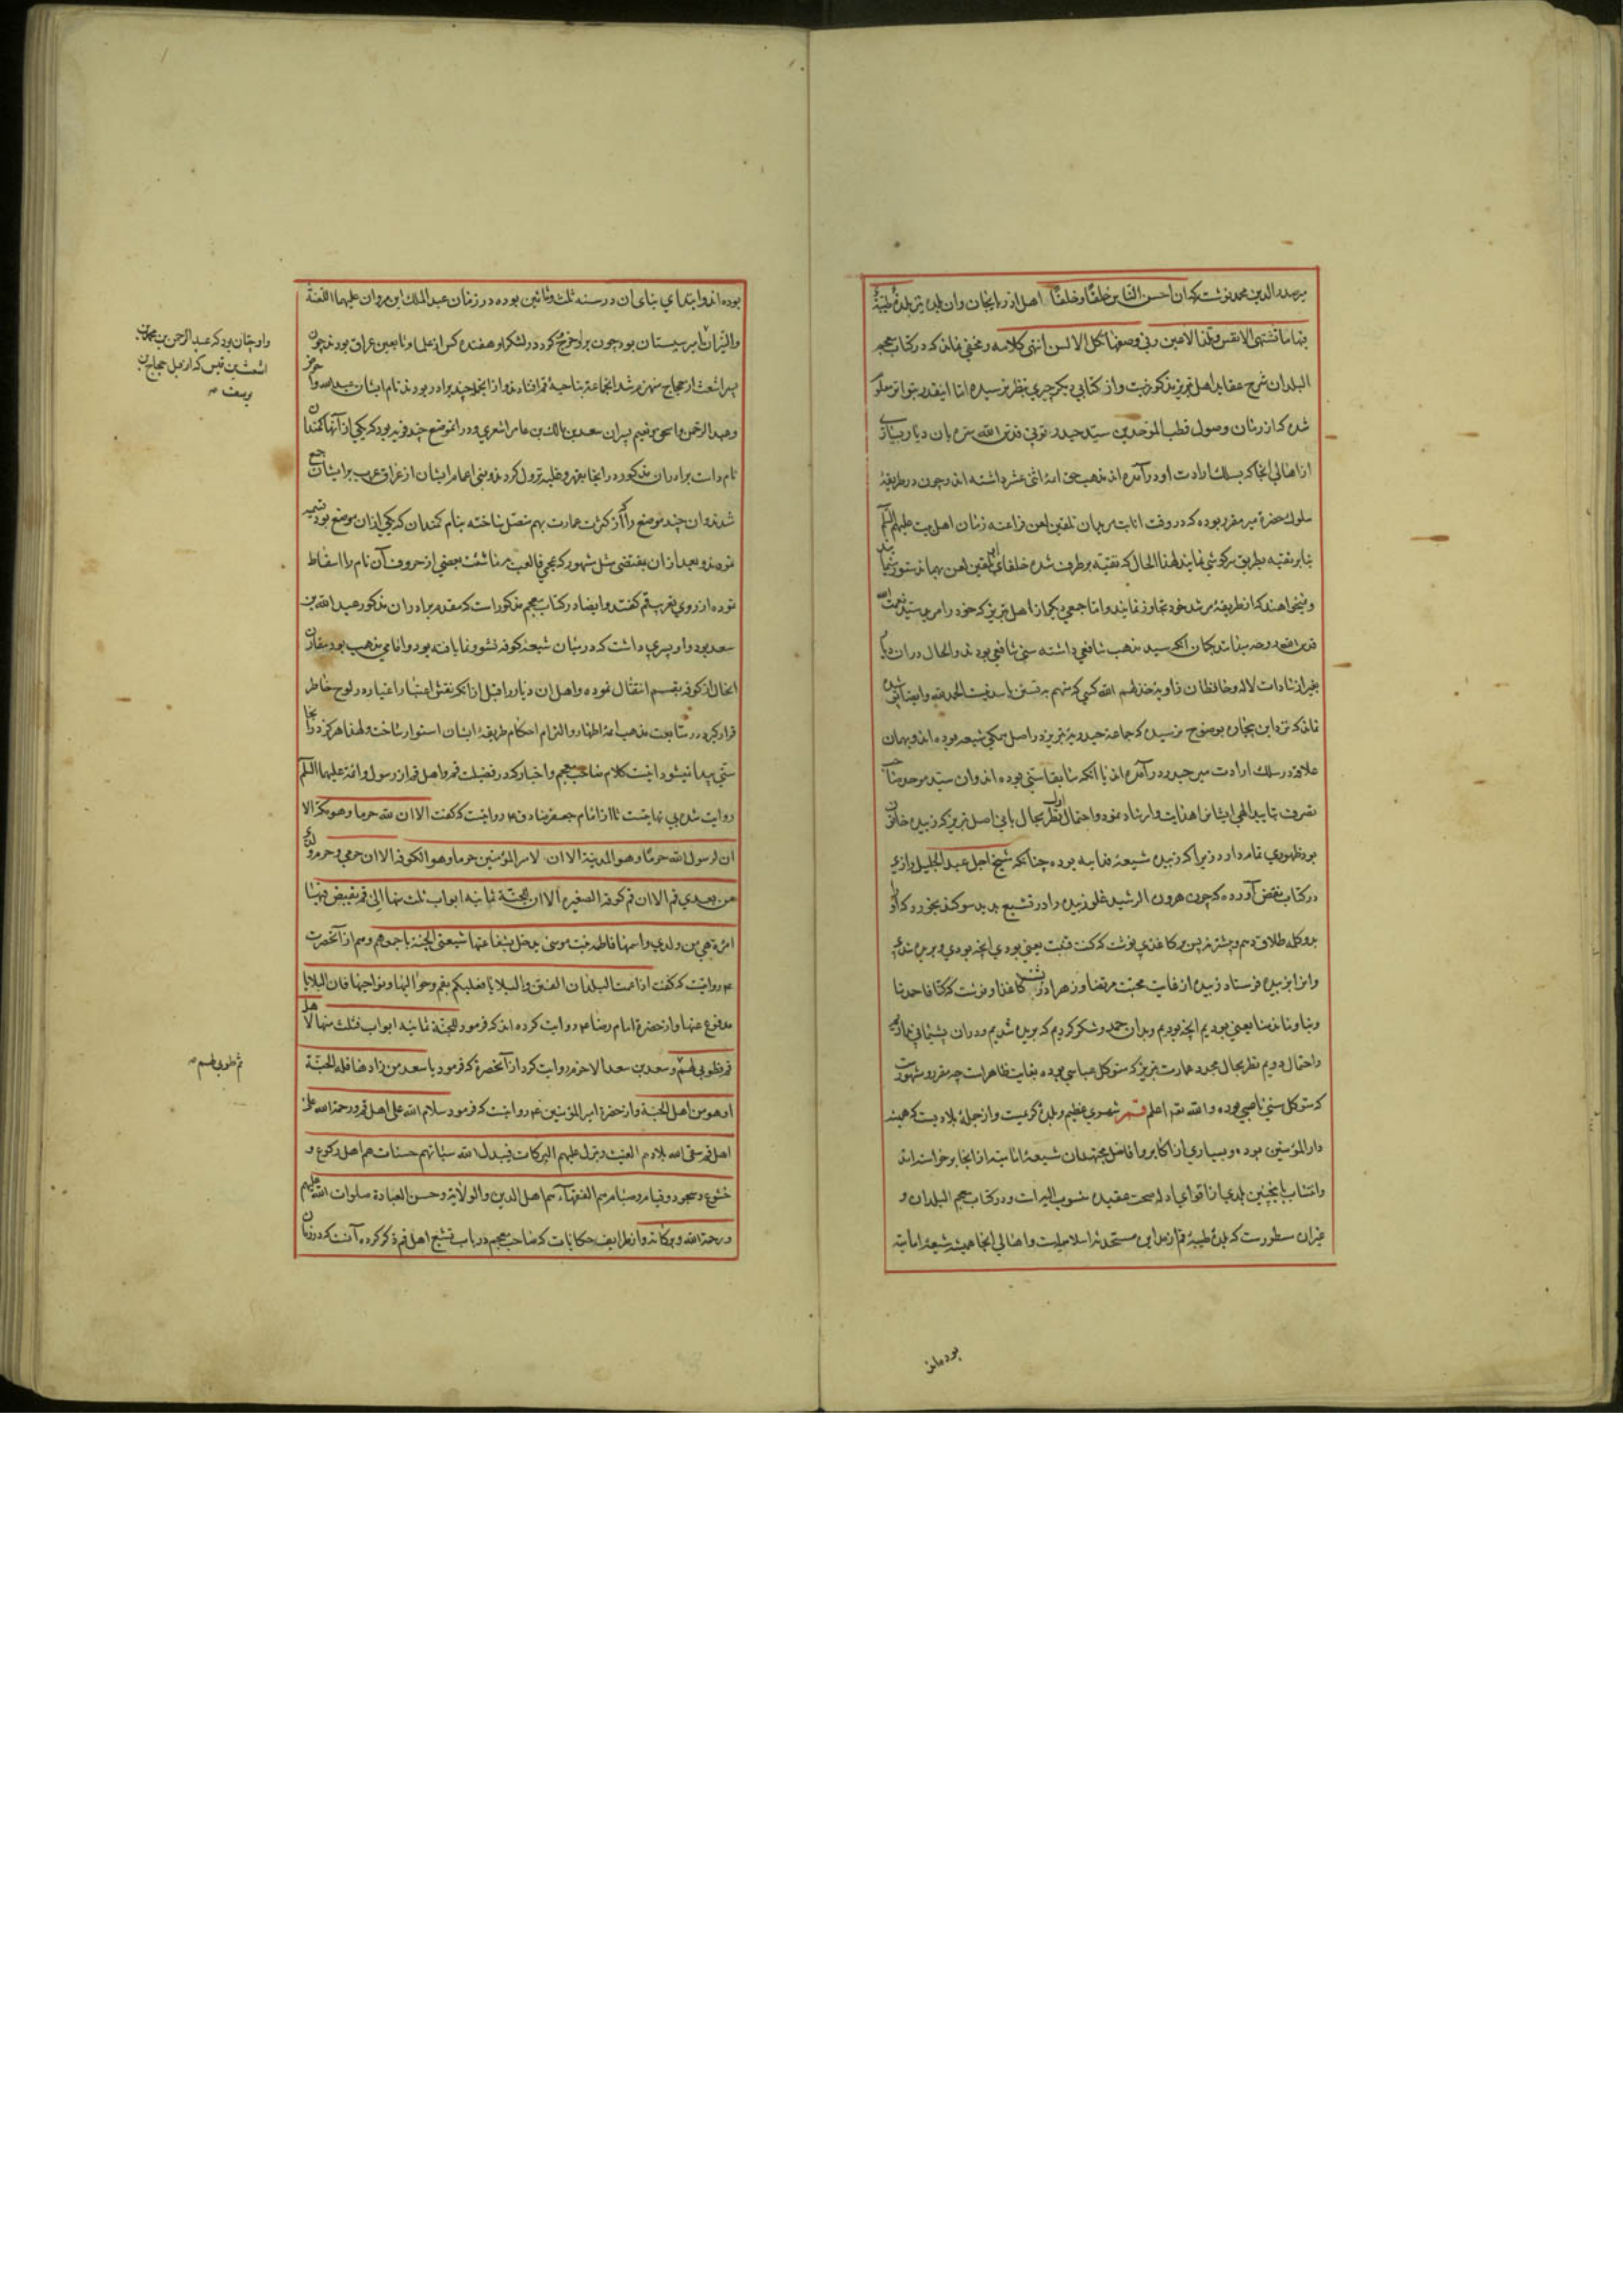 میر صدر الدین محمد نوشته که ان احسن الناس خلقا وخلقا اهل اذربایجان وان بلدة تبریز بلدة طیبة
فیها ما تشتهی الانفس وتلذ الاعین وفی وصفها کل الالسن انتهی کلامه ومخفی نماند که در کتاب معجم
البلدان شرح عقاید اهل تبریز مذکور نیست واز کتابی دیگر چیزی بنظر نرسیده اما اینقدر بتواتر معلوم
شده که از زمان وصول قطب الموحدین سید حیدر تونی قدس الله سره بان دیار بسیاری
از اهالی انجا که بسلک ارادت او در آمده اند مذهب حق ائمه اثنی عشر داشته اند وچون در طریقهٔ
سلوک حضرة میر مقرر بوده که در وقت انابت مریدان تلقین لعن فراعنه زمان اهل بیت علیهم السلم
بنابر تقیه بطریق سرگوشی نمایند لهذا الحال که تقیه بر طرف شده خلفای ایشان تلقین لعن بهمان دستور
ونمیخواهند که از طریقهٔ مرشد خود تجاوز نمایند واما جمعی دیگر از اهل تبریز که خود را مرید سید نعمت الله
قدس الله روحه میدانند بگمان آنکه سید مذهب شافعی داشته سنی شافعی بودند والحال در ان دیار
بغیر از سادات لاله وحافظان
نماند که نزد این بیچاره بوضوح نرسیده که جماعة حیدریهٔ تبریز در اصل همگی شیعه بوده اند وبهمان
علاقه در سلک ارادت میر حیدر در آمده اند یا آنکه سابقا سنی بوده اند وان سید موحد صاحب
تصرف بتایید الهی ایشانرا هدایت وارشاد نموده واحتمال اول نظر بحال بانی اصل تبریز که زبیده خاتون
بود ظهوری تمام دارد زیرا که زبیده شیعهٔ فدایه بوده چنانکه شیخ اجل عبد الجلیل رازی
در کتاب نقض آورده که چون هرون الرشید غلو زبیده را در تشیع بدید سوکند بخورد که او را
بدو کلمه طلاق دهم
وانرا بزبیده فرستاد زبیده از غایت محبت مرتضا وزهرا در پشت کاغذ او نوشت که کنا فما حمدنا
وبنا فما ندمنا یعنی بودیم انچه بودیم وبدان حمد وشکر نکردیم که بریده شدیم ودران پشیمانی نداریم
واحتمال دویم نظر بحال مجدد عمارت تبریز که متوکل عباسی بوده بغایت ظاهر است چه مقرر ومشهورست
که متوکل سنی ناصبی بوده والله تعالی اعلم قم شهری عظیم وبلدهٔ کریمست واز جملهٔ بلادیست که همیشه
دار المؤمنین بوده وبسیاری از اکابر وافاضل مجتهدان شیعهٔ امامیه از انجا برخواسته اند
وانتساب باینچنین بلدی از اقوای ادلهٔ صحت عقیدهٔ منسوب الیه است ودر کتاب معجم البلدان و
غیر ان مسطورست که بلدهٔ طیبهٔ قم از مداین مستحدثهٔ اسلامیست واهالی انجا همیشه شیعهٔ امامیه
بوده اند
بوده اند وابتدای بنای ان در سنه ثلث وثمانین بوده در زمان عبد الملک ابن مروان علیهما اللعنة
والنیران امیر سیستان بود چون براو خروج کرد در لشکر او هفده کس از علما وتابعین عراق بودند چون
پسر اشعث از حجاج منهزم شد انجماعة بناحیهٔ قم افتادند واز انجمله چند برادر بودند نام ایشان عبد الله واحوص
وعبد الرحمن واسحق ونعیم پسران سعد بن مالک بن عامر اشعری ودر انموضع چند قریه بود که یکی از آنها کمندان
نام داشت برادران مذکوره در انجا بقهر وغلبه نزول کردند وبنی اعمام ایشان از عراق عرب بر ایشان جمع
شدند وان چند موضع را از کثرت عمارت بهم متصل ساخته بنام کمندان که یکی ازان مواضع بود تسمیه
نمودند وبعد ازان بمقتضی مثل مشهور که عجمی فالعب به ما شئت بعضی از حروف آن نام را اسقاط
نموده از روی تعریب قم گفتند وایضا در کتاب معجم مذکور است که مقدم برادران مذکور عبد الله بن
سعد بود واو پسری داشت که در میان شیعهٔ کوفه نشو ونما یافته بود وامامی مذهب بود مقارن
انحال از کوفه بقم انتقال نموده واهل ان دیار را قبل از انکه نقش اعتبار اغیار در لوح خاطر
قرار گیرد در متابعت مذهب ائمهٔ اطهار والتزام احکام طریقهٔ ایشان استوار ساخت ولهذا هرگز در انجا
سنی پیدا نمیشود اینست کلام صاحب معجم واخبار که در فضیلت قم واهل قم از رسول وائمه علیهما السلم
روایت شده بی نهایتست از امام جعفر صادق ع روایتست که گفت الا ان لله حرما وهو مکة الا
ان لرسول الله حرما وهو المدینة الا ان لامیر المؤمنین حرما وهو الکوفة الا ان حرمی وحرم ولدی
من بعدی قم الا ان قم کوفة الصغیرة الا ان للجنة ثمانیه ابواب ثلث منها الی قم تقبض فیها
امرأة هی من ولدی واسمها فاطمه بنت موسی یدخل بشفاعتها شیعتی الجنة باجمعهم وهم از آنحضرت
ع روایتست که گفت اذا عمت البلدان الفتن والبلایا فعلیکم بقم وحوالیها ونواحیها فان البلایا
مدفوع عنها واز حضرة امام رضا ع روایت کرده اند که فرمود للجنة ثمانیه ابواب فثلث منها لاهل
قم فطوبی لهم وسعد بن سعد الاخرم روایت کرد از آنحضرة که فرمود یا سعد من زارها فله الجنة
او هو من اهل الجنة واز حضرة امیر المؤمنین ع روایتست که فرمود سلام الله علی اهل قم ورحمة الله علی
اهل قم سقی الله بلادهم الغیث وینزل علیهم البرکات فیبدل الله سیئاتهم حسنات هم اهل رکوع و
خشوع وسجود وقیام وصیام هم الفقهاء هم اهل الدین والولایة وحسن العبادة صلوات الله علیهم
ورحمة الله وبرکاته واز ظرایف حکایات که صاحب معجم در باب تشیع اهل قم ذکر کرده آنست که در زمان
واو چنان بود که عبد الرحمن بن محمد بن
اشعث بن قیس که از قبل حجاج بن
یوسف
ثم طوبی لهم